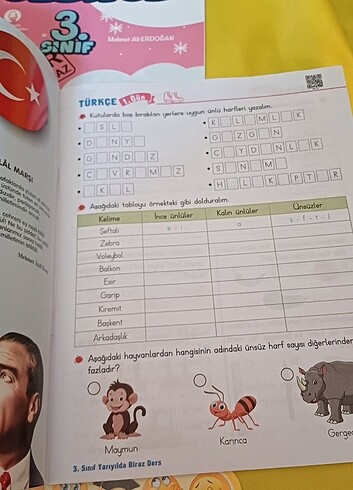 3.
SINIF
Mehmet Ali ERDOĞAN
TÜRKÇE 1. Gün
Kutularda boş bırakılan yerlere uygun ünlü harfleri yazalım.
S L
D N Y
G N D Z
C V R M Z
K L
K L M L K
G Z G N
C Y D N L K
S N M
H L K P T R
Aşağıdaki tabloyu örnekteki gibi dolduralım.
Kelime İnce ünlüler Kalın ünlüler Ünsüzler
Şeftali e - i a ş - f - t - l
Zebra
Voleybol
Balkon
Esir
Garip
Kiremit
Başkent
Arkadaşlık
Aşağıdaki hayvanlardan hangisinin adındaki ünsüz harf sayısı diğerlerinden
fazladır?
Maymun Karınca Gerge
3. Sınıf Yarıyılda Biraz Ders